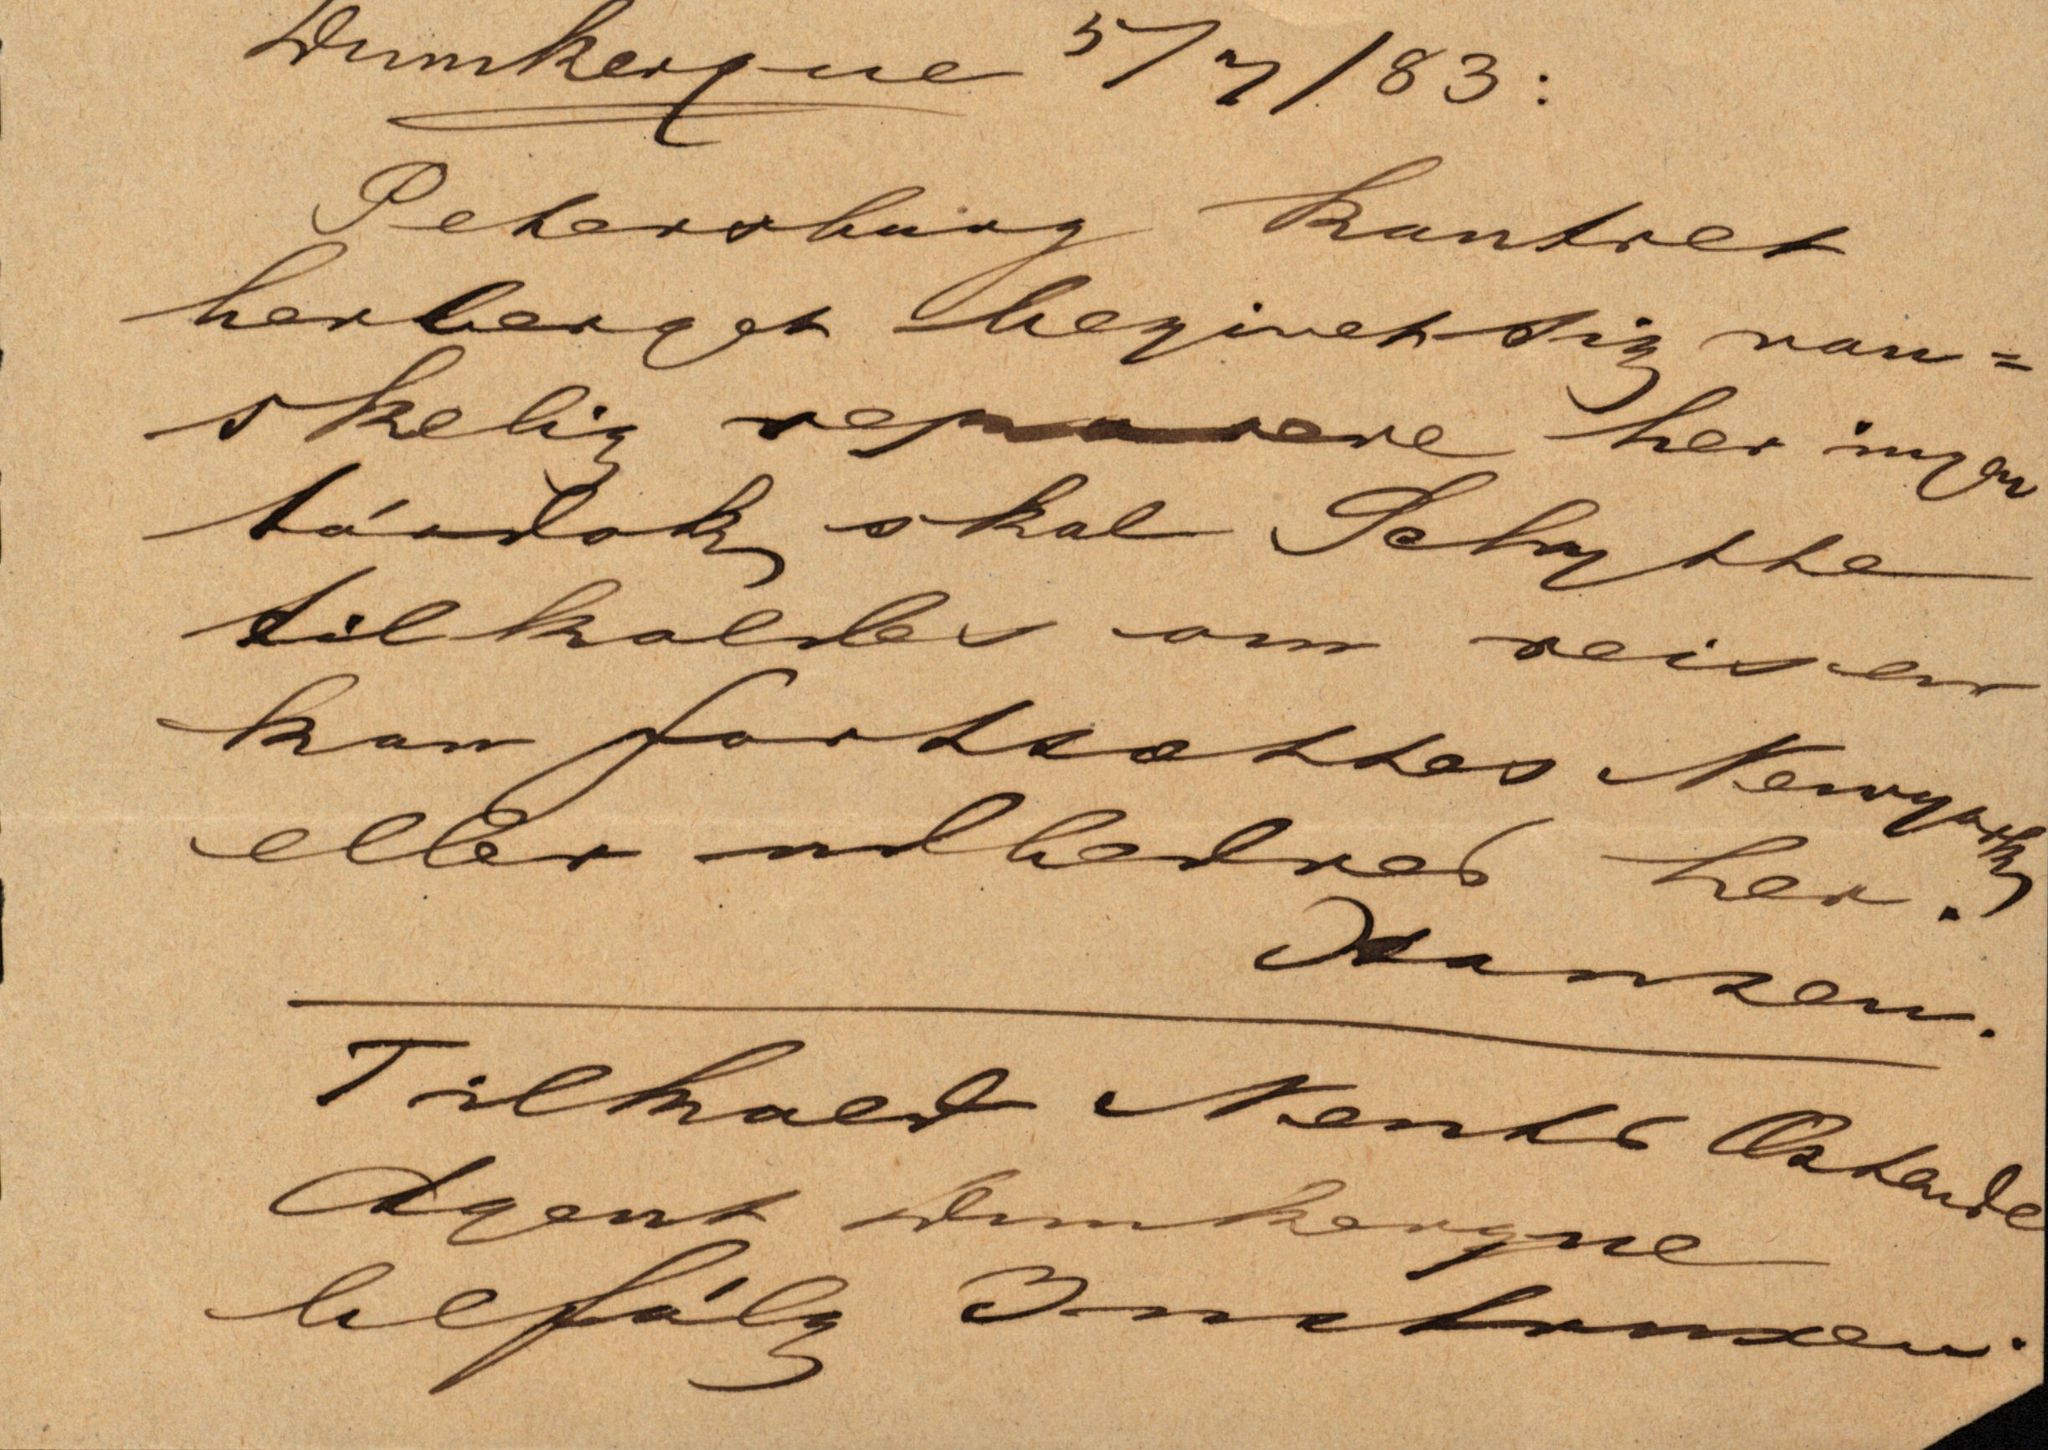 Dunkerque 5/7/83:
Petersburg kantret
herberget begivet sig van=
skelig reparere her ingen
tørdok skal Schytte
tilkaldes om reisen
kan fortsættes Newyork
eller udbedres her.
Hansen.
Tilkald Nents Ostende
Agent Dunkerque
befølg Instruxen.